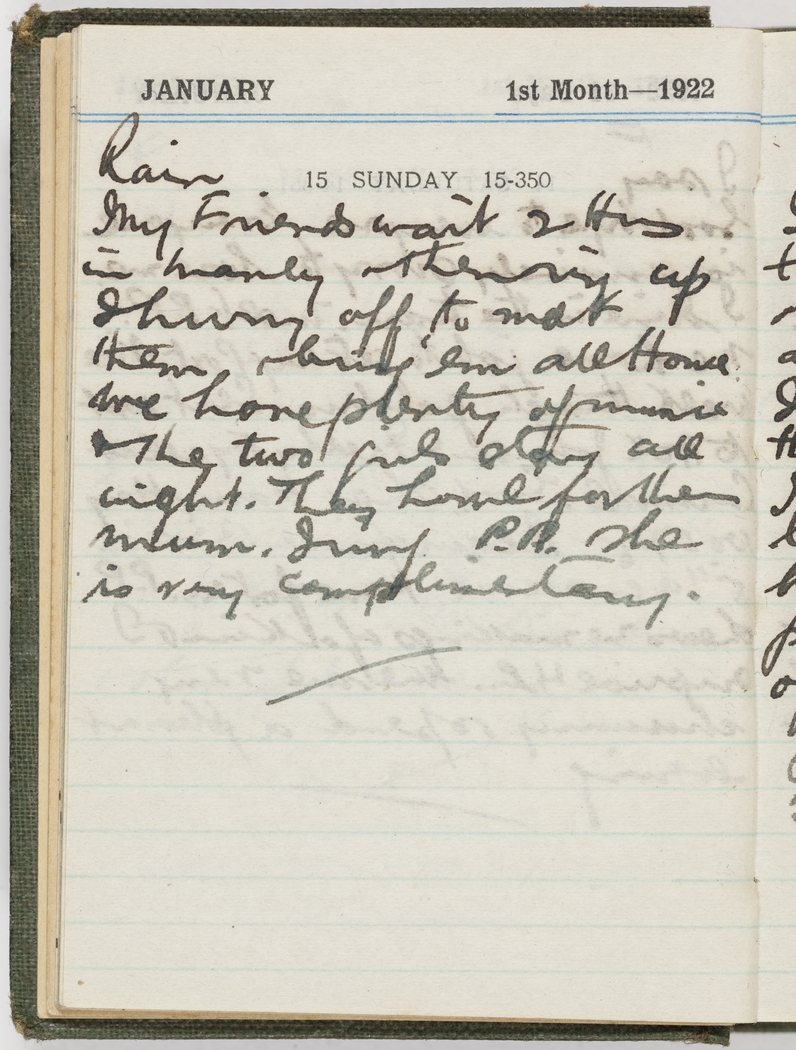 JANUARY 1st Month—1922
Rain
15 SUNDAY 15-350
My Friends wait 2 Hrs
in Manly & then ring up
I hurry off to meet
them & bring 'em all Home
We have plenty of music
& the two girls stay all
night. They howl for their
mum. I ring P.R. she
is very complimentary.